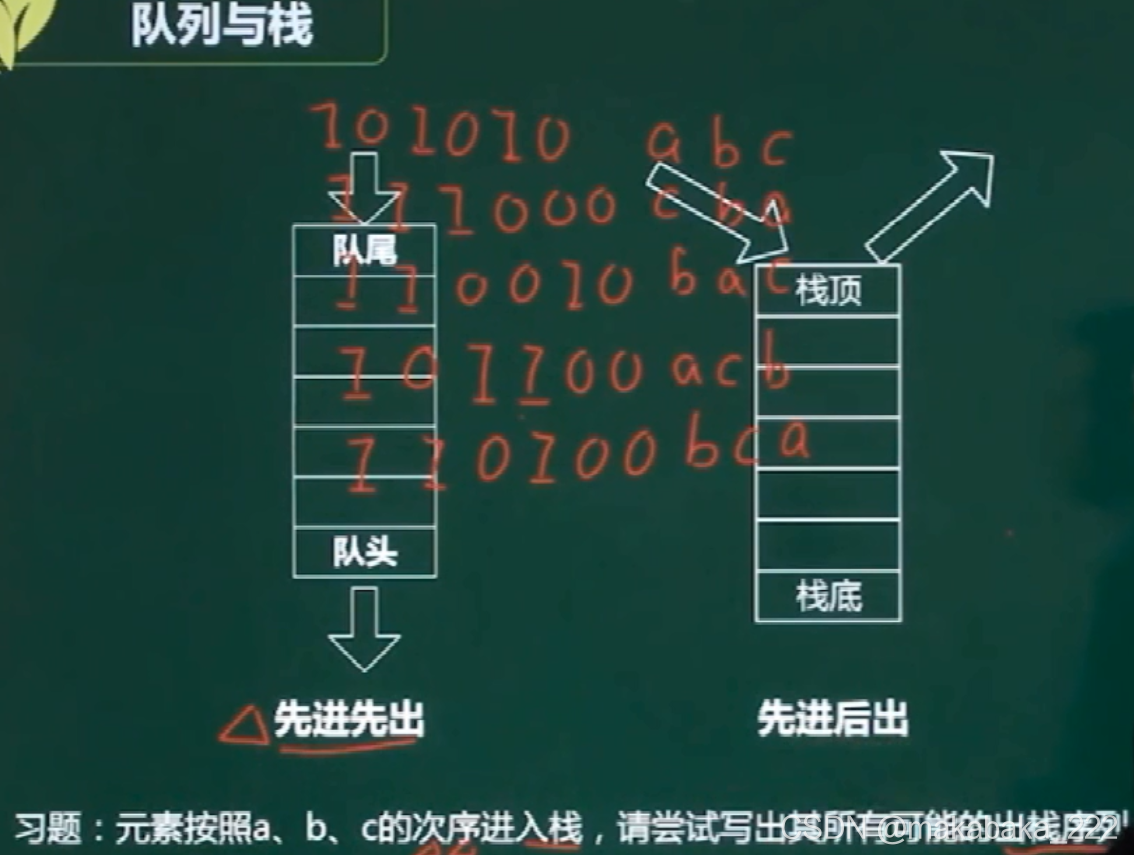 队列与栈
101010 abc
111000 cba
队尾
110010 bac
栈顶
101100 acb
110100 bca
队头
栈底
△先进先出
先进后出
习题：元素按照a、b、c的次序进入栈，请尝试写出其所有可能的出栈序列
CSDN @makabaka_222